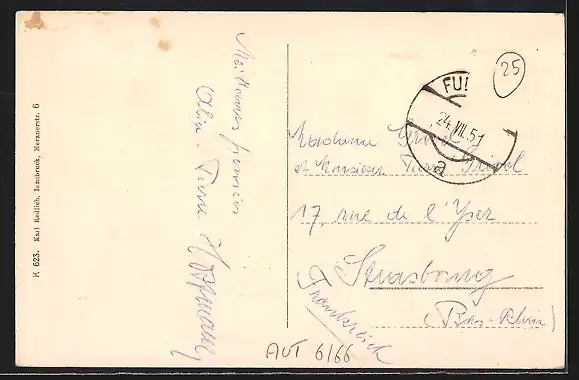 P. 623. Karl Redlich, Innsbruck, Meranerstr. 6
Meilleures pensées
25
FU
24.VII.51
a
Madame
et Monsieur
17, rue de l'Yser
Strasbourg
(Bas-Rhin)
Frankreich
AUT 6/66